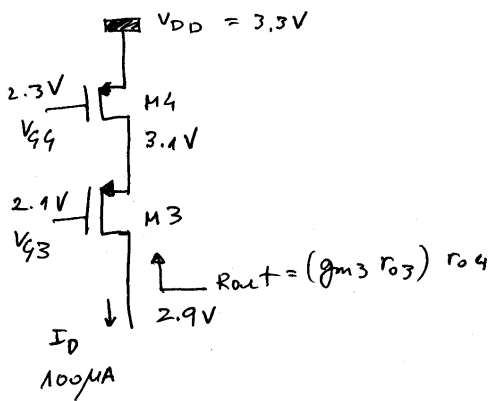 VDD = 3.3V
2.3V
M4
VG4
3.1V
2.1V
M3
VG3
Rout = (gm3 ro3) ro4
2.9V
ID
100μA